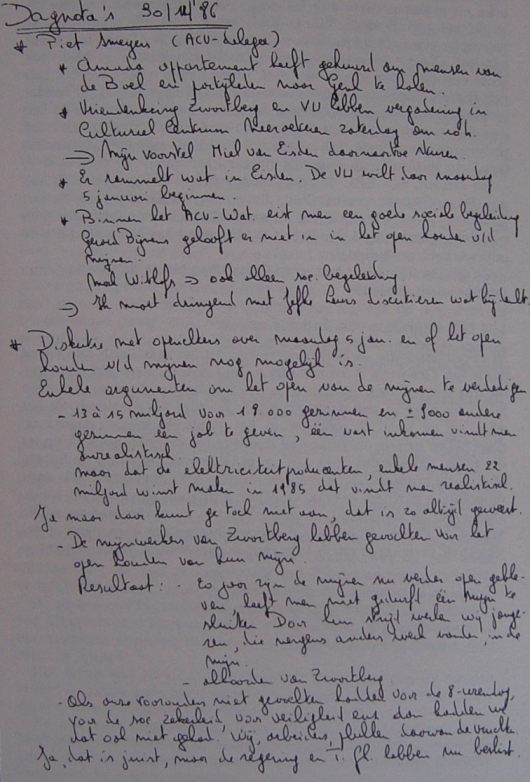 Dagnota's 30/12/86
* Piet Smeyers (ACV-delegee)
* Amuda appartement heeft gehuurd om mensen van
de Boel en portijleden naar Genk te halen.
* Vriendenkring Zwartberg en VU hebben vergadering in
Cultureel Centrum Meeroeteren zaterdag om 10 h.
→ Mijn voorstel Miel van Eisden daarnaartoe sturen.
* Er rammelt wat in Eisden. De VU wilt daar maandag
5 januari beginnen.
* Binnen het ACV-Wat. eist men een goede sociale begeleiding
Gerard Bijnens gelooft er niet in in het open houden v/d
mijnen.
→ ook alleen soc. begeleiding
→ Ik moet dringend met Jefke discutieren wat hij denkt.
* Diskutie met over maandag 5 jan. en of het open
houden v/d mijnen nog mogelijk is.
Enkele argumenten om het open van de mijnen te verdedigen
- 13 à 15 miljard voor 19.000 gezinnen en ± 9000 andere
gezinnen een job te geven, één vast inkomen vindt men
onrealistisch.
maar dat de elektriciteitproducenten, enkele mensen 22
miljard winst maken in 1985 dat vindt men realistisch.
Ja maar daar kunt ge toch niet aan, dat is zo altijd geweest.
- De mijnwerkers van Zwartberg hebben gevochten voor het
open houden van hun mijn.
Resultaat: - 20 jaar zijn de mijnen nu verder open geble-
ven, heeft men niet gedurfd één mijn te
sluiten Door hun strijd werken wij jonge-
ren, die nergens anders werk vonden, in de
mijn.
- akkoorden van Zwartberg
- Als onze voorouders niet gevochten hadden voor de 8-urendag,
voor de soc zekerheid, voor veiligheid enz dan hadden we
dat ook niet gehad. Wij, arbeiders, plukken daarvan de vruchten
Ja, dat is juist, maar de regering en T. Gh. hebben nu beslist